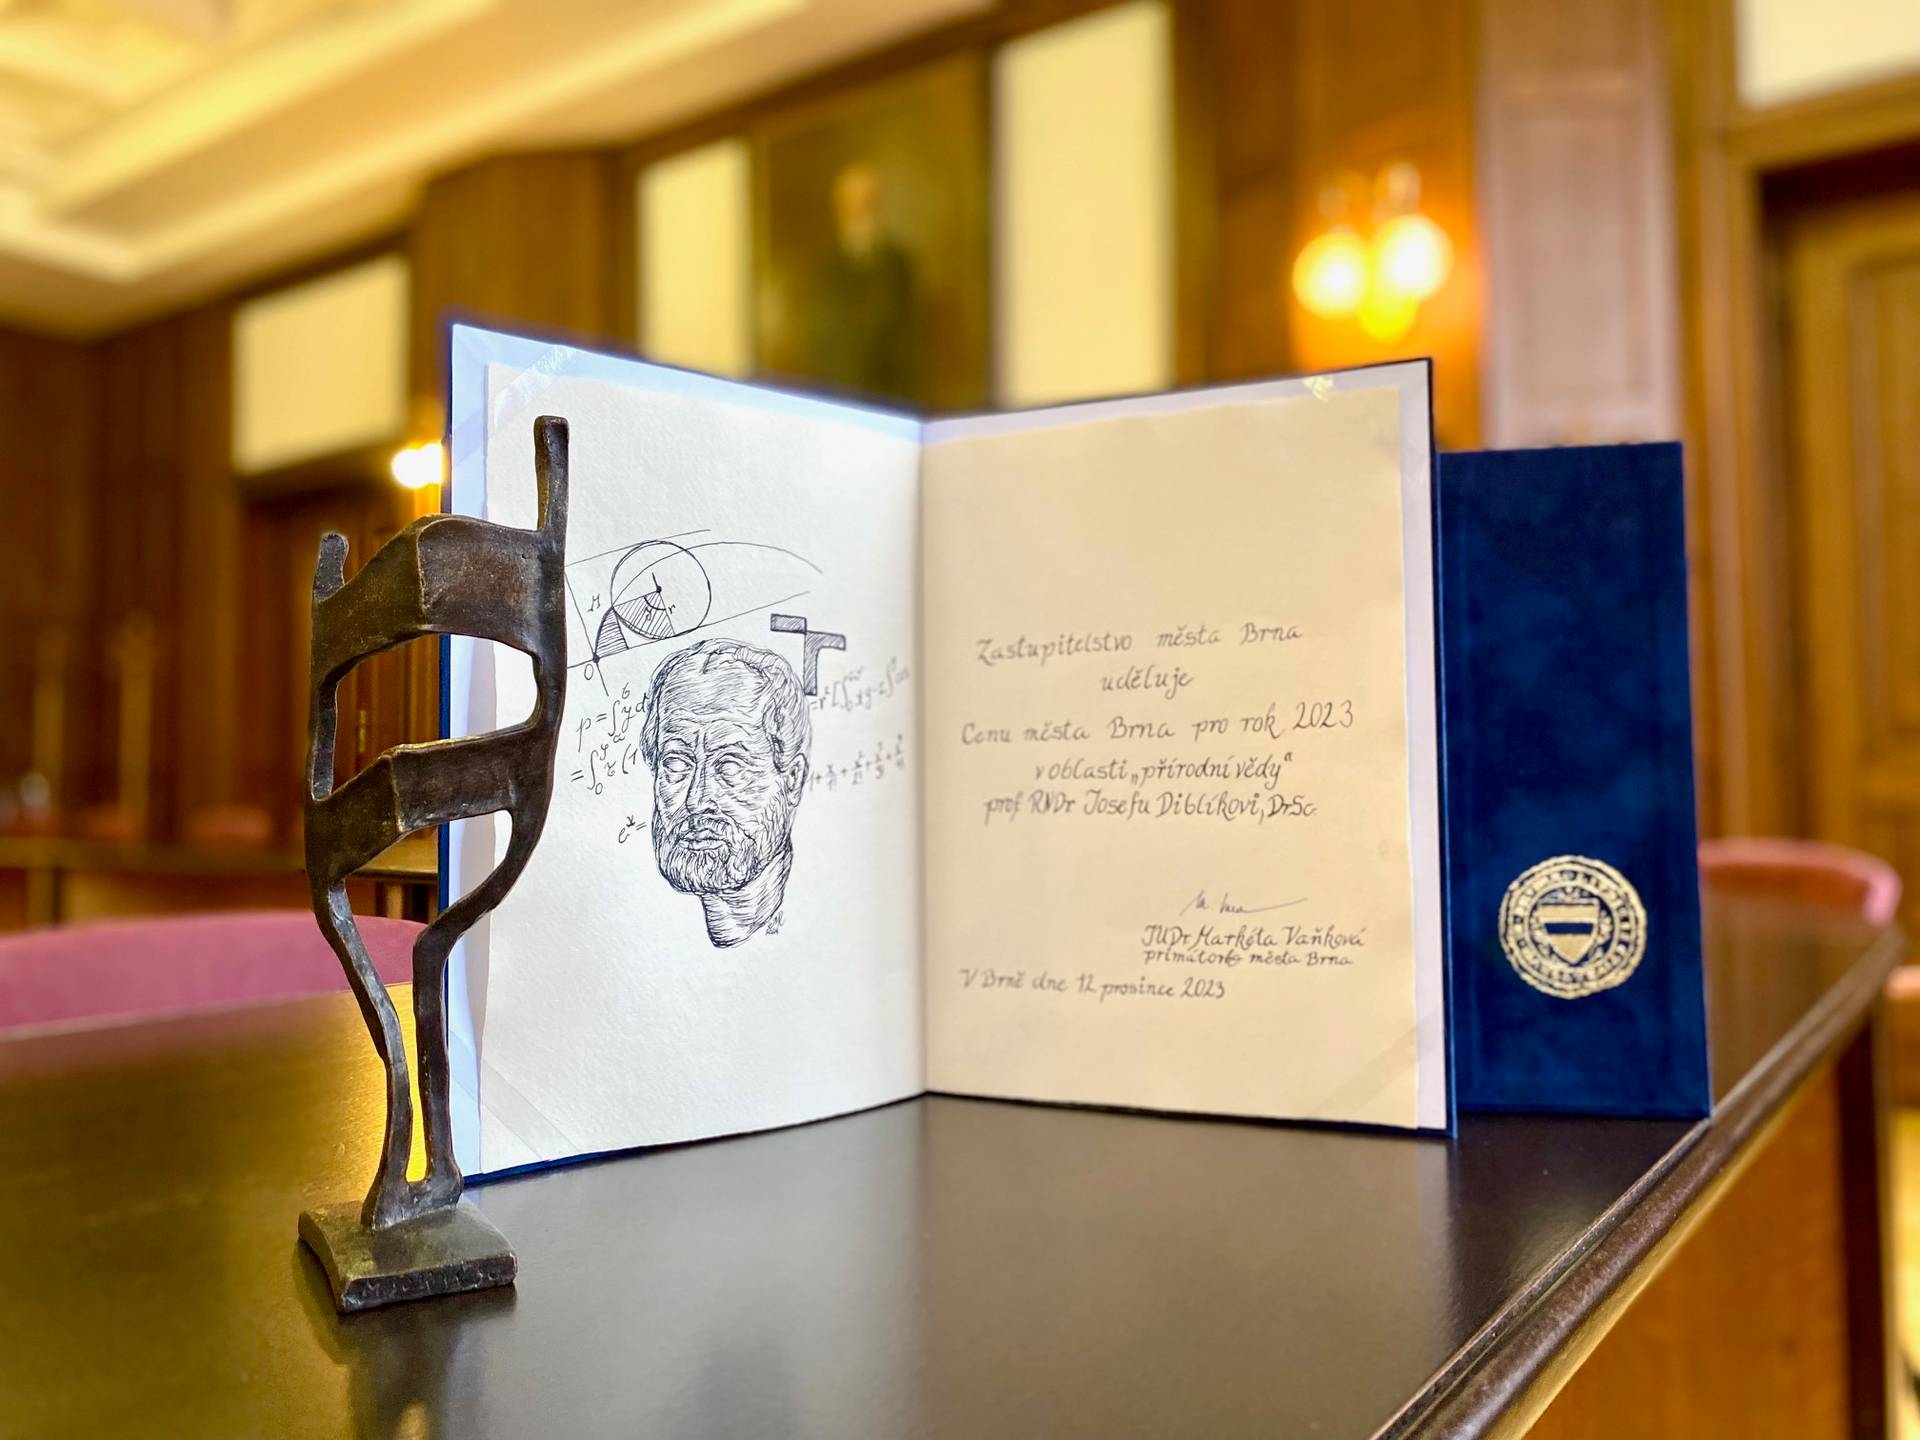 M
r
O
e^x=
Zastupitelstvo města Brna
uděluje
Cenu města Brna pro rok 2023
v oblasti „přírodní vědy“
prof RNDr Josefu Diblíkovi, DrSc.
JUDr Markéta Vaňková
primátorka města Brna
V Brně dne 12 prosince 2023